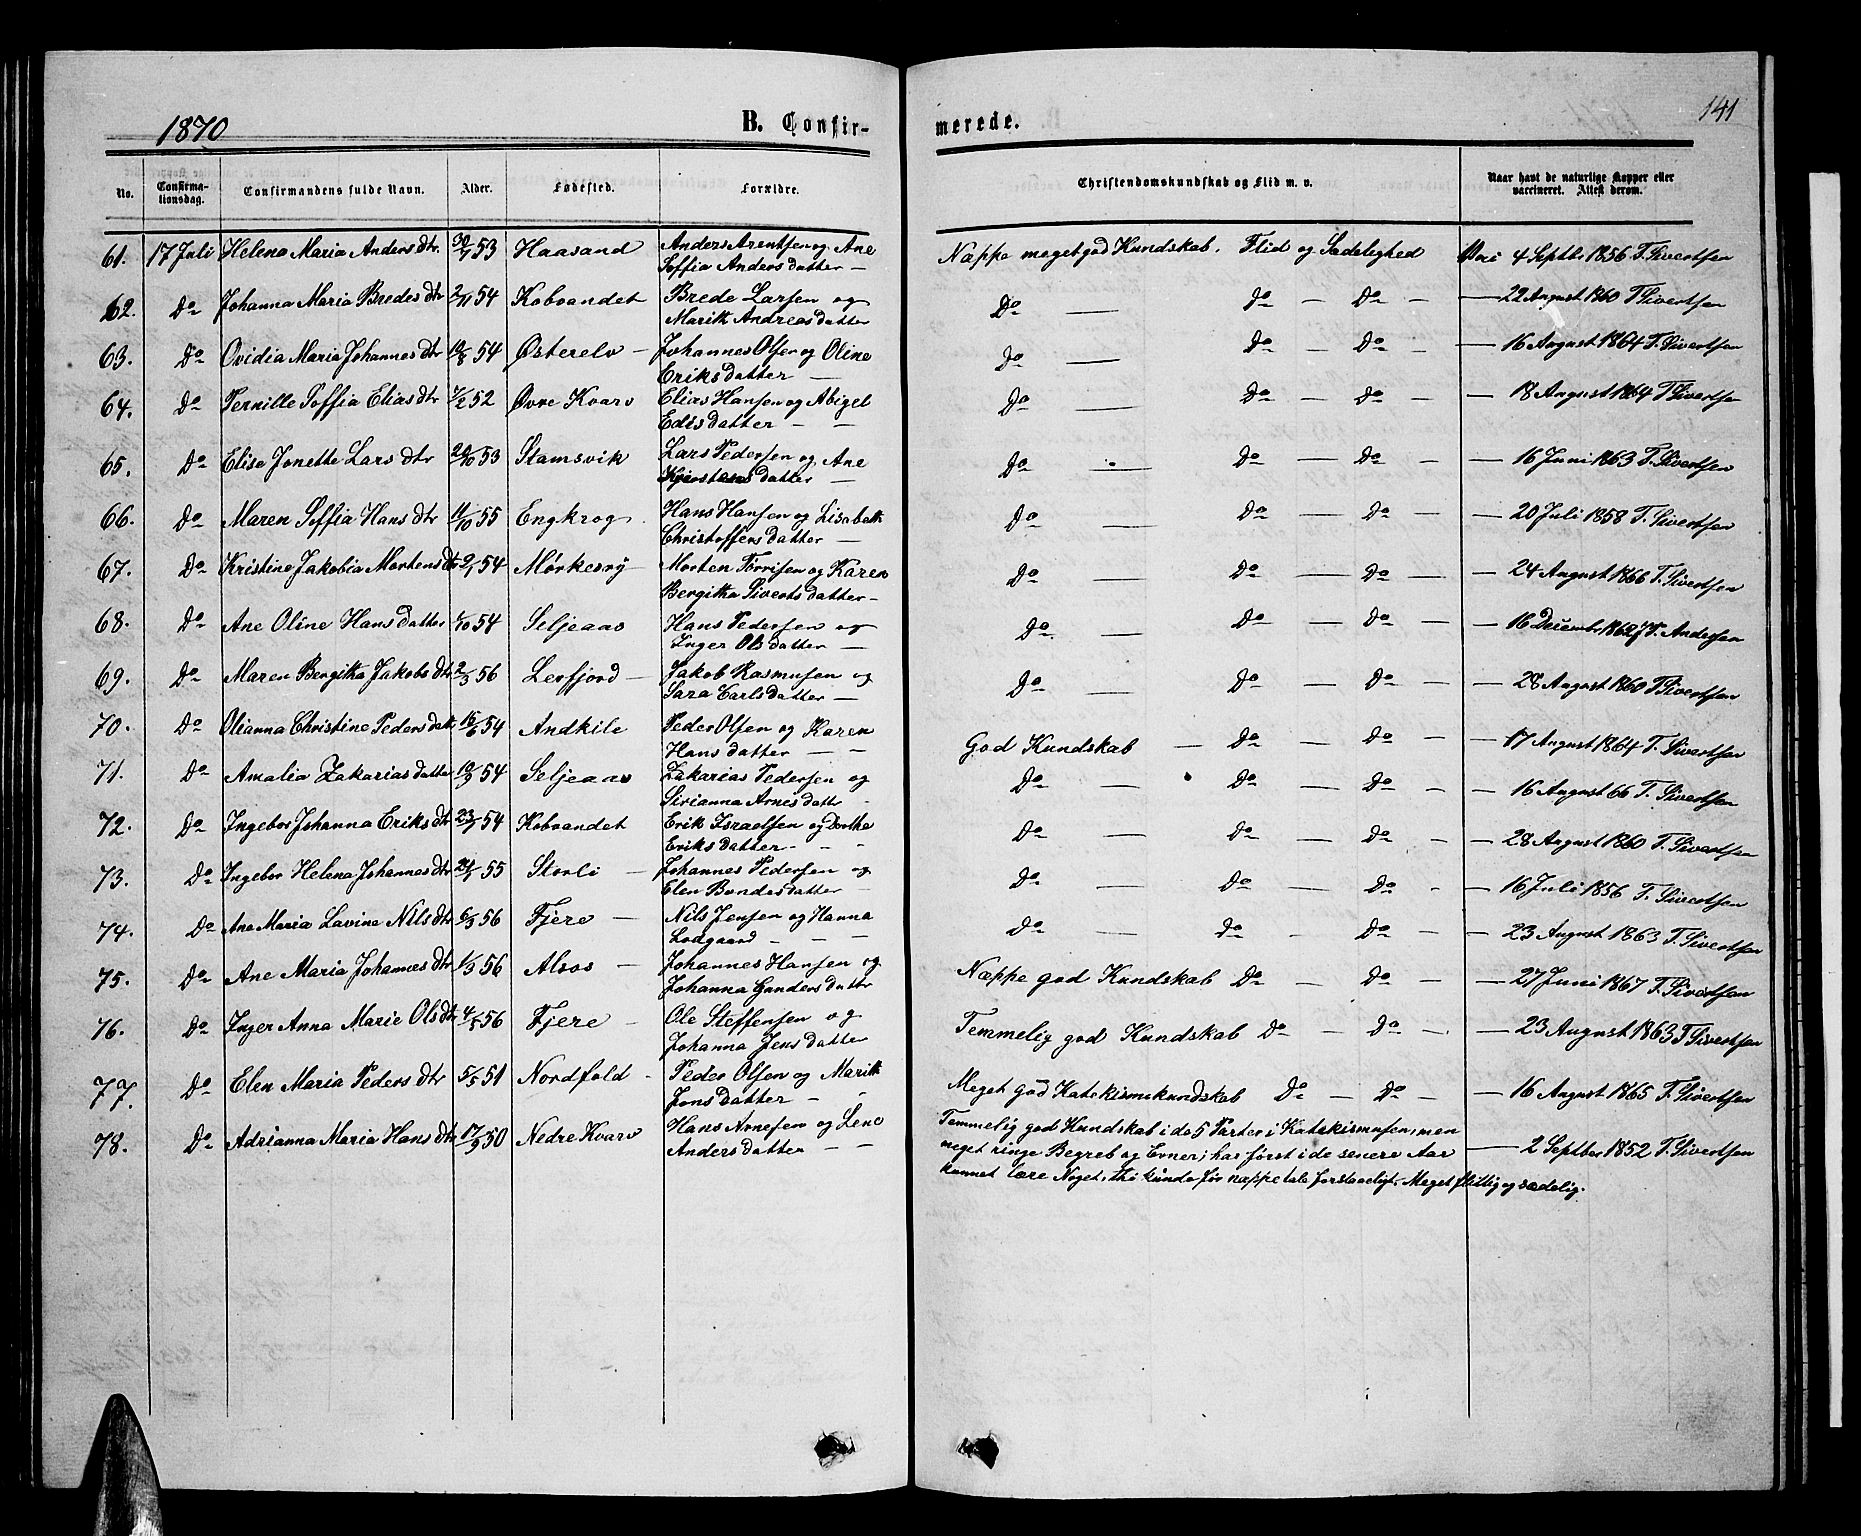 1870
B. Confir-
merede.
141
No. Confirma-tionsdag. Confirmandens fulde Navn. Alder. Fødested. Forældre. Christendomskundskab og Flid m. v. Naar havt de naturlige Kopper eller vaccineret. Attest derom.
61. 17 Juli Helena Maria Anders dtr. 30/7 53 Haasand Anders Arentsen og Ane Næppe meget god Kundskab. Flid og Sædelighed 4 Septbr 1856 T. Sivertsen
Soffia Anders datter —
62. Do Johanna Maria Bredes dtr 2/11 54 Kobvandet Brede Larsen og Do — Do — Do — — 22 August 1860 T Sivertsen
Marith Andreas datter
63. Do Ovidia Maria Johannes dtr 10/8 54 Østerelv — Johannes Olsen og Oline Do — Do — Do — — 16 August 1864 T. Sivertsen
Eriks datter —
64. Do Pernille Soffia Elias dtr /2 52 Øvre Kvarv Elias Hansen og Abigel Do — Do — Do — — 18 August 1864 T Sivertsen
Edisdatter — —
65. Do Elise Jonette Lars dtr 20/10 53 Stamsvik Lars Pedersen og Ane Do — Do — Do — — 16 Juni 1863 T. Sivertsen
datter —
66. Do Maren Soffia Hans dtr 11/10 55 Engkrog Hans Hansen og Lisabeth Do — Do — Do — — 20 Juli 1858 T. Sivertsen
Christoffers datter —
67. Do Kristine Jakobia Mortens dtr 2/1 54 Mørkesvij Morten Torrisen og Karen Do — Do — Do — — 24 August 1866 T. Sivertsen
Bergitha Siverts datter —
68. Do Ane Oline Hans datter /10 54 Seljeaas Hans Pedersen og Do — Do — Do — — 16 December 1862 P. Andersen
Inger Ols datter —
69. Do Maren Bergitha Jakobs dtr 2/3 56 Lerfjord — Jakob Rasmusen og Do — Do — Do — — 28 August 1860 T Sivertsen
Sara Carls datter —
70. Do Olianna Christine Peders datt 15/6 54 Andkile Peder Olsen og Karen God Kundskab — Do — Do — — 17 August 1864 T. Sivertsen
Hans datter — —
71. Do Amalia Zakarias datter 10/9 54 Seljeaas Zakarias Pedersen og Do — Do — Do — — 16 August 66 T. Sivertsen
Sirianna Arnes datter
72. Do Ingebor Johanna Eriks dtr 23/7 54 Kobvandet Erik Israelsen og Dorthe Do — Do — Do — — 28 August 1860 T. Sivertsen
Eriks datter — — —
73. Do Ingebor Helena Johannes dtr 24/1 55 Storli — Johannes Pedersen og Do — Do — Do — — 16 Juli 1856 T. Sivertsen
Elen Bendes datter —
74. Do Ane Maria Lavine Nils dtr 6/3 56 Fjere — Nils Jensen og Hanna Do — Do — Do — — 23 August 1863 T. Sivertsen
Lodgaard — — —
75. Do Ane Maria Johannes dtr 1/3 56 Alsos — Johannes Hansen og Næppe god Kundskab Do — Do — — 27 Juni 1867 T. Sivertsen
Johanna Gunders datter
76. Do Inger Anna Marie Ols dtr 4/5 56 Fjere — Ole Steffensen og Temmelig god Kundskab Do — Do — — 23 August 1863 T Sivertsen
Johanna Jens datter
77. Do Elen Maria Peders dtr 5/5 51 Nordfold — Peder Olsen og Marith Meget god Katekismekundskab Do — Do — — 16 August 1865 T. Sivertsen
Jons datter — —
78. Do Adrianna Maria Hans dtr 17/9 50 Nedre Kvarv Hans Arnesen og Lene Temmelig god Kundskab i de 5 Parter i Katekismusen, men — 2 Septber 1852 T. Sivertsen
Anders datter — meget ringe Begreb og Evner; har først i de senere Aar
kunnet lære Noget, thi kunde før næppe tale forstaaeligt. Meget flittig og sædelig.